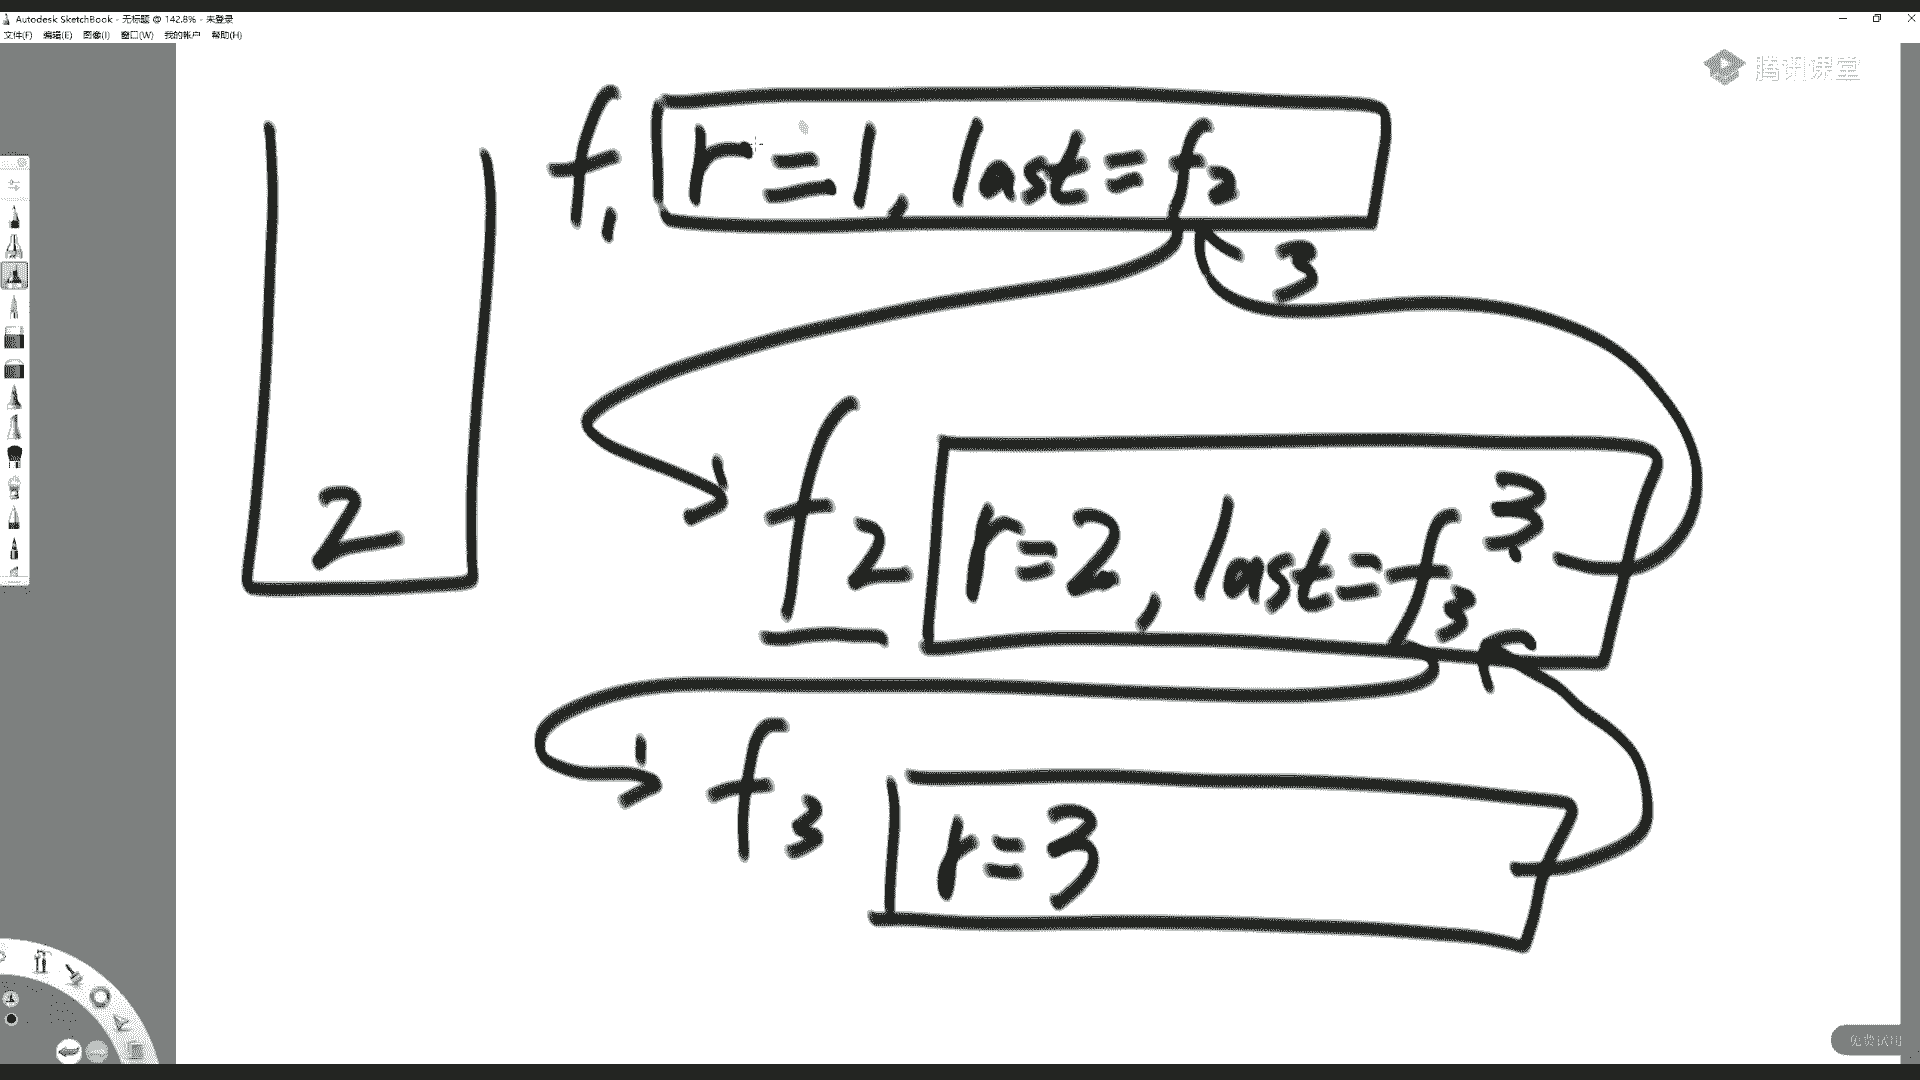 Autodesk SketchBook - 无标题 @ 142.8% - 未登录
文件(F) 编辑(E) 图像(I) 窗口(W) 我的帐户 帮助(H)
腾讯课堂
f1 r=1, last=f2
3
f2 r=2, last=f3 3
2
f3 r=3
免费试用